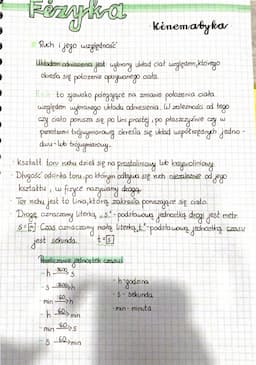 Fizyka
Kinematyka
Ruch i jego względność
Układem odniesienia jest wybrany układ ciał względem, którego
określa się położenie opisywanego ciała.
to zjawisko polegające na zmianie położenia ciała
względem wybranego układu odniesienia. W zależności od tego
czy ciało porusza się po linii prostej, po płaszczyźnie czy w
przestrzeni trójwymiarowej określa się układ współrzędnych jedno-
dwu- lub trójwymiarowy.
- kształt toru ruchu dzieli się na prostoliniowy lub krzywoliniowy
- Długość odcinka toru, po którym odbywa się ruch niezależnie od jego
kształtu, w fizyce nazywamy drogą.
- Tor ruchu jest to linia, którą zakreśla poruszające się ciało.
- Drogę oznaczamy literką „s" - podstawową jednostką drogi jest metr
s=[m] Czas oznaczamy małą literką „t" - podstawową jednostką czasu
jest sekunda. t=[s]
Przeliczanie jednostek czasu
- h 3600 s
- s 3600 h
- min 60 h
- h 60 min
- min 60 s
- s 60 min
- h - godzina
- s - sekunda
- min - minuta